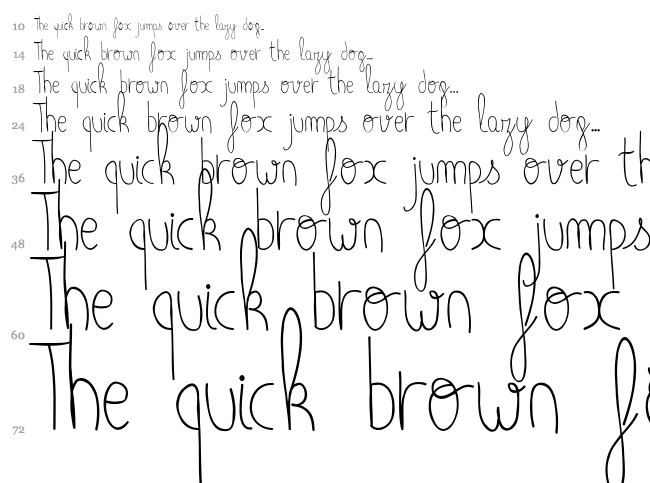 10 The quick brown fox jumps over the lazy dog...
14 The quick brown fox jumps over the lazy dog...
18 The quick brown fox jumps over the lazy dog...
24 The quick brown fox jumps over the lazy dog...
36 The quick brown fox jumps over th
48 The quick brown fox jumps
60 The quick brown fox
72 The quick brown fo